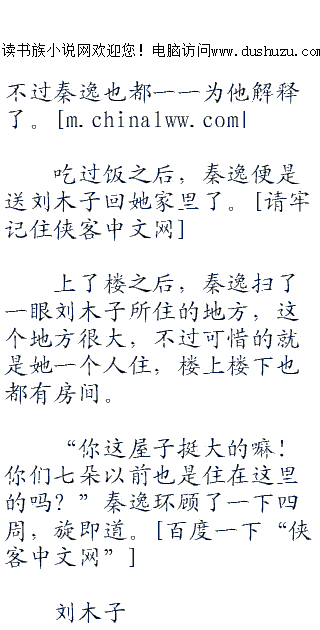 读书族小说网欢迎您！电脑访问www.dushuzu.com
不过秦逸也都一一为他解释
了。[m.china1ww.com|
吃过饭之后，秦逸便是
送刘木子回她家里了。[请牢
记住侠客中文网]
上了楼之后，秦逸扫了
一眼刘木子所住的地方，这
个地方很大，不过可惜的就
是她一个人住，楼上楼下也
都有房间。
“你这屋子挺大的嘛！
你们七朵以前也是住在这里
的吗？”秦逸环顾了一下四
周，旋即道。[百度一下“侠
客中文网”]
刘木子